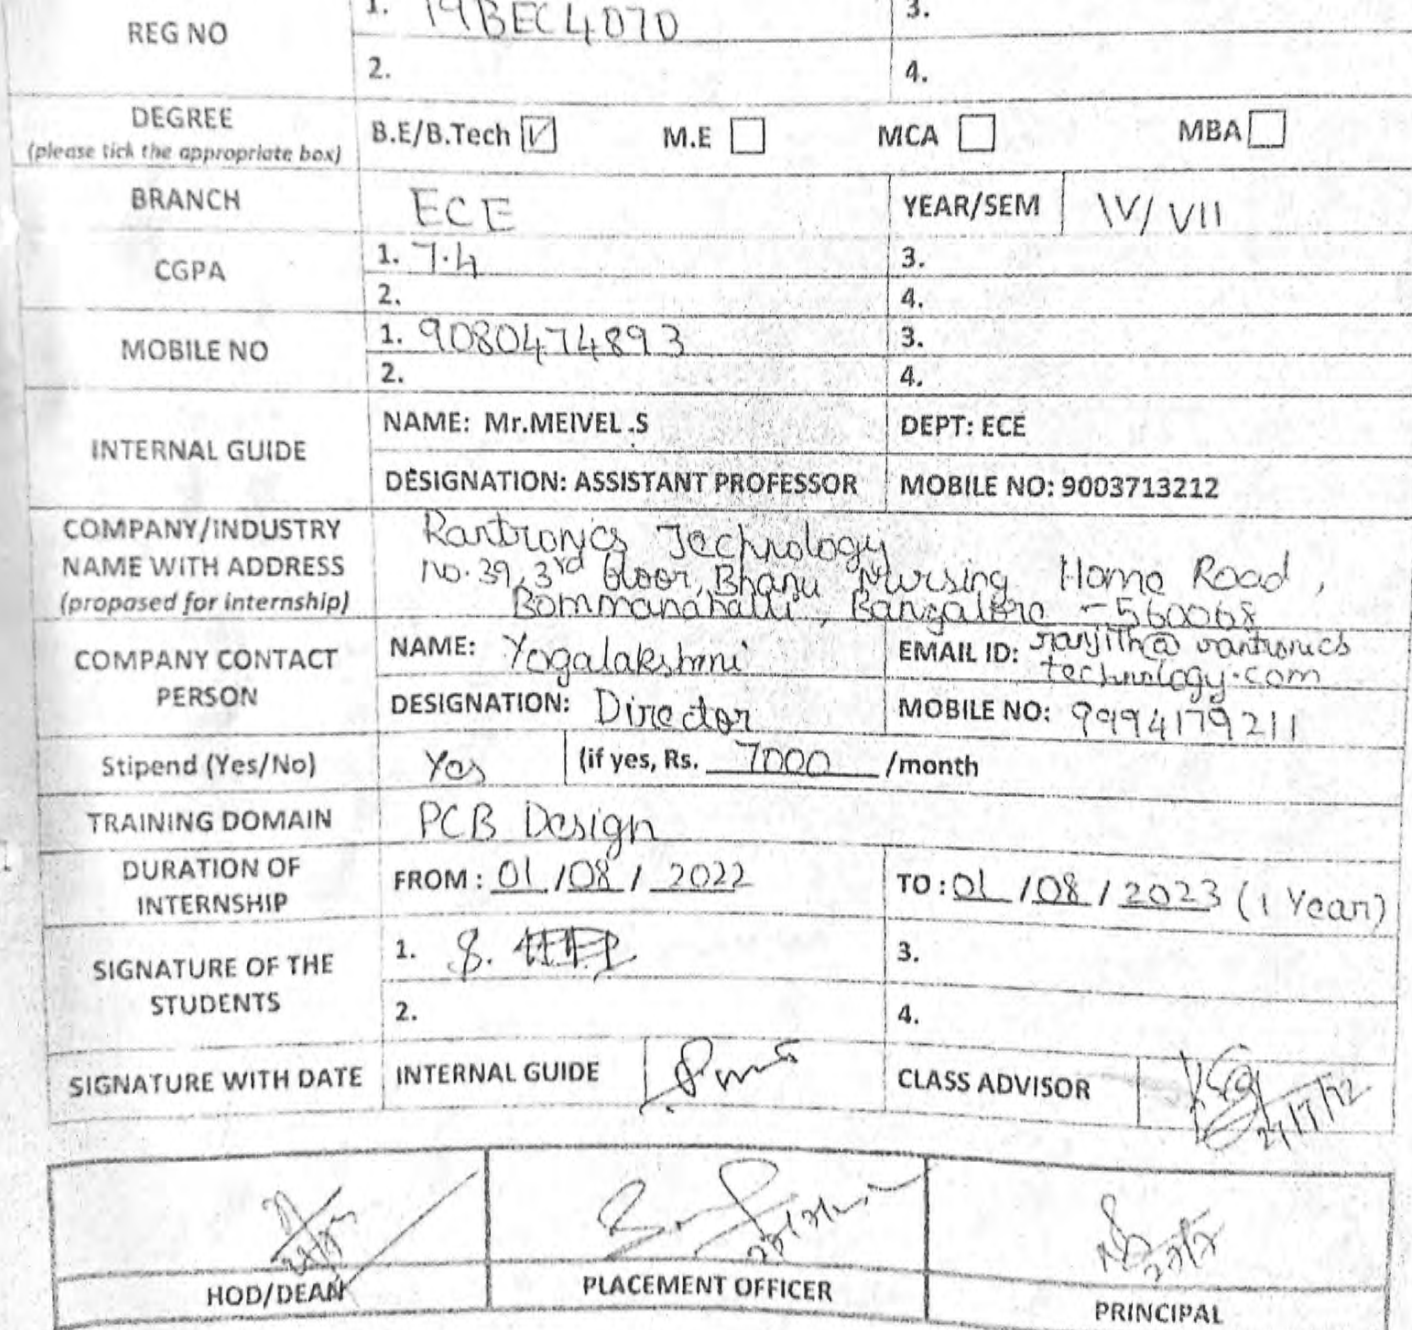 REG NO
1. 19BEC4070 3.
2. 4.
DEGREE
(please tick the appropriate box)
B.E/B.Tech M.E MCA MBA
BRANCH ECE YEAR/SEM IV/VII
CGPA
1. 7.4 3.
2. 4.
MOBILE NO
1. 9080474893 3.
2. 4.
INTERNAL GUIDE
NAME: Mr.MEIVEL .S DEPT: ECE
DESIGNATION: ASSISTANT PROFESSOR MOBILE NO: 9003713212
COMPANY/INDUSTRY
NAME WITH ADDRESS
(proposed for internship)
Rantronics Technology
No.39, 3rd floor, Bhanu Nursing Home Road,
Bommanahalli, Bangalore - 560068
COMPANY CONTACT
PERSON
NAME: Yogalakshmi EMAIL ID: ranjith@rantronics
technology.com
DESIGNATION: Director MOBILE NO: 9994179211
Stipend (Yes/No) Yes (if yes, Rs. 7000 /month
TRAINING DOMAIN PCB Design
DURATION OF
INTERNSHIP
FROM : 01/08/2022 TO : 01/08/2023 (1 Year)
SIGNATURE OF THE
STUDENTS
1. S. 3.
2. 4.
SIGNATURE WITH DATE INTERNAL GUIDE CLASS ADVISOR
HOD/DEAN PLACEMENT OFFICER PRINCIPAL